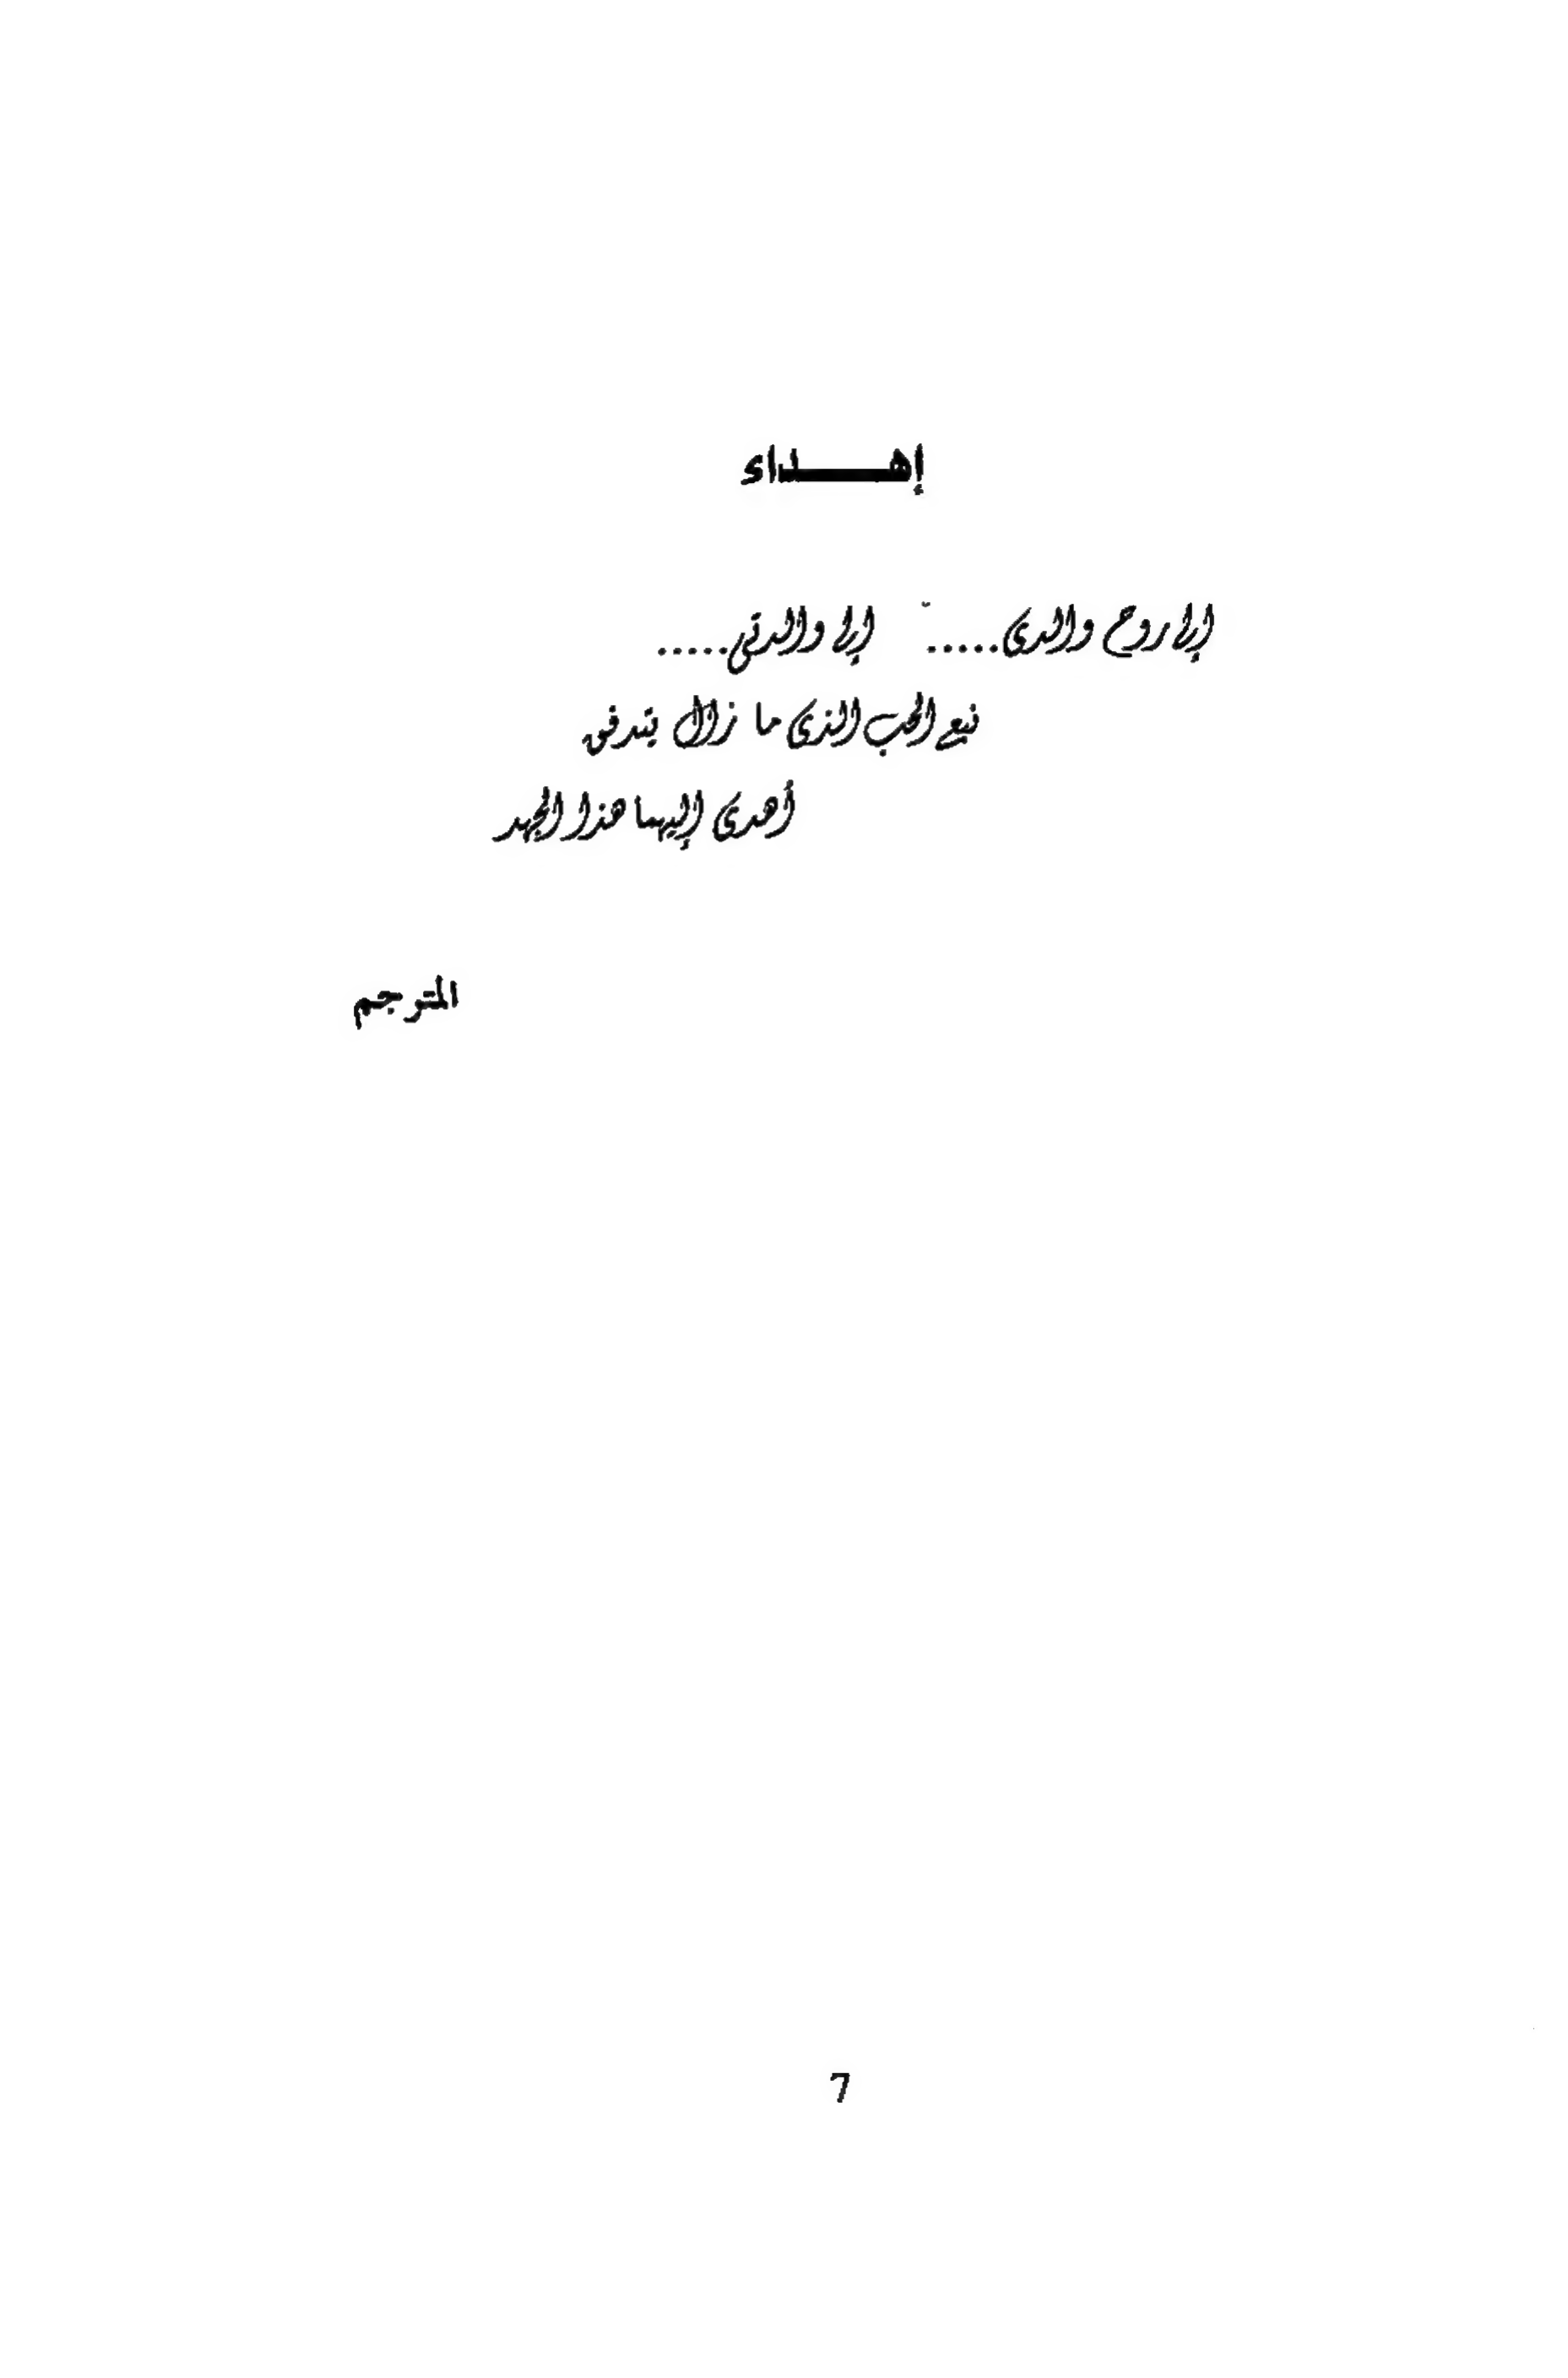 إهـــــداء
إلى روح والدى..... إلى والدتى.....
نبع الحب الذى ما زال يتدفق
أهدى إليهما هذا الجهد
المترجم
7